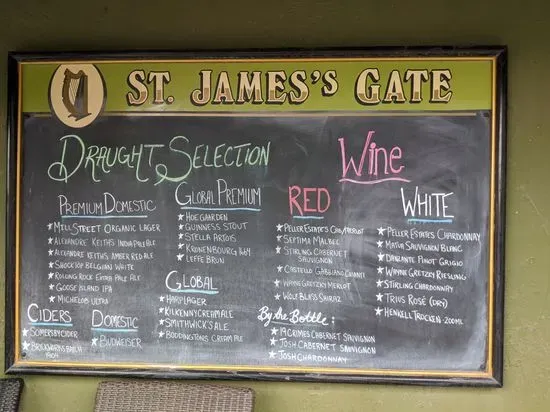 ST. JAMES'S GATE
DRAUGHT SELECTION
PREMIUM DOMESTIC
★ MILL STREET ORGANIC LAGER
★ ALEXANDRE KEITHS INDIA PALE ALE
★ ALEXANDRE KEITHS AMBER RED ALE
★ SHOCKTOP BELGIAN WHITE
★ ROLONG ROCK EXTRA PALE ALE
★ GOOSE ISLAND IPA
★ MICHELOB ULTRA
CIDERS
★ SOMERSBY CIDER
★ BRICKWORKS BATCH
1904
DOMESTIC
★ BUDWEISER
GLOBAL PREMIUM
★ HOEGAARDEN
★ GUINNESS STOUT
★ STELLA ARTOIS
★ KRONENBOURG 1664
★ LEFFE BRUN
GLOBAL
★ HARP LAGER
★ KILKENNY CREAM ALE
★ SMITHWICK'S ALE
★ BODDINGTONS CREAM ALE
Wine
RED
★ PELLER ESTATES CAB/MERLOT
★ SEPTIMA MALBEC
★ STIRLING CABERNET
SAUVIGNON
★ CASTELLO GABBIANO CHIANTI
★ WAYNE GRETZKY MERLOT
★ WOLF BLASS SHIRAZ
By the Bottle:
★ 19 CRIMES CABERNET SAUVIGNON
★ JOSH CABERNET SAUVIGNON
★ JOSH CHARDONNAY
WHITE
★ PELLER ESTATES CHARDONNAY
★ MATUA SAUVIGNON BLANC
★ DANZANTE PINOT GRIGIO
★ WAYNE GRETZKY RIESLING
★ STIRLING CHARDONNAY
★ TRIUS ROSÉ (DRY)
★ HENKELL TROCKEN - 200ML